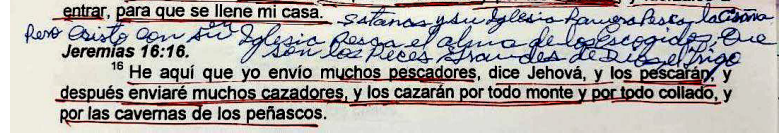 entrar, para que se llene mi casa.
Satanas y su Iglesia Ramera Pesca la cizaña
Pero Cristo con su Iglesia Pesca el alma de los escogidos, que
son los Peces Grandes de Dios el trigo
Jeremías 16:16.
16 He aquí que yo envío muchos pescadores, dice Jehová, y los pescarán, y
después enviaré muchos cazadores, y los cazarán por todo monte y por todo collado, y
por las cavernas de los peñascos.